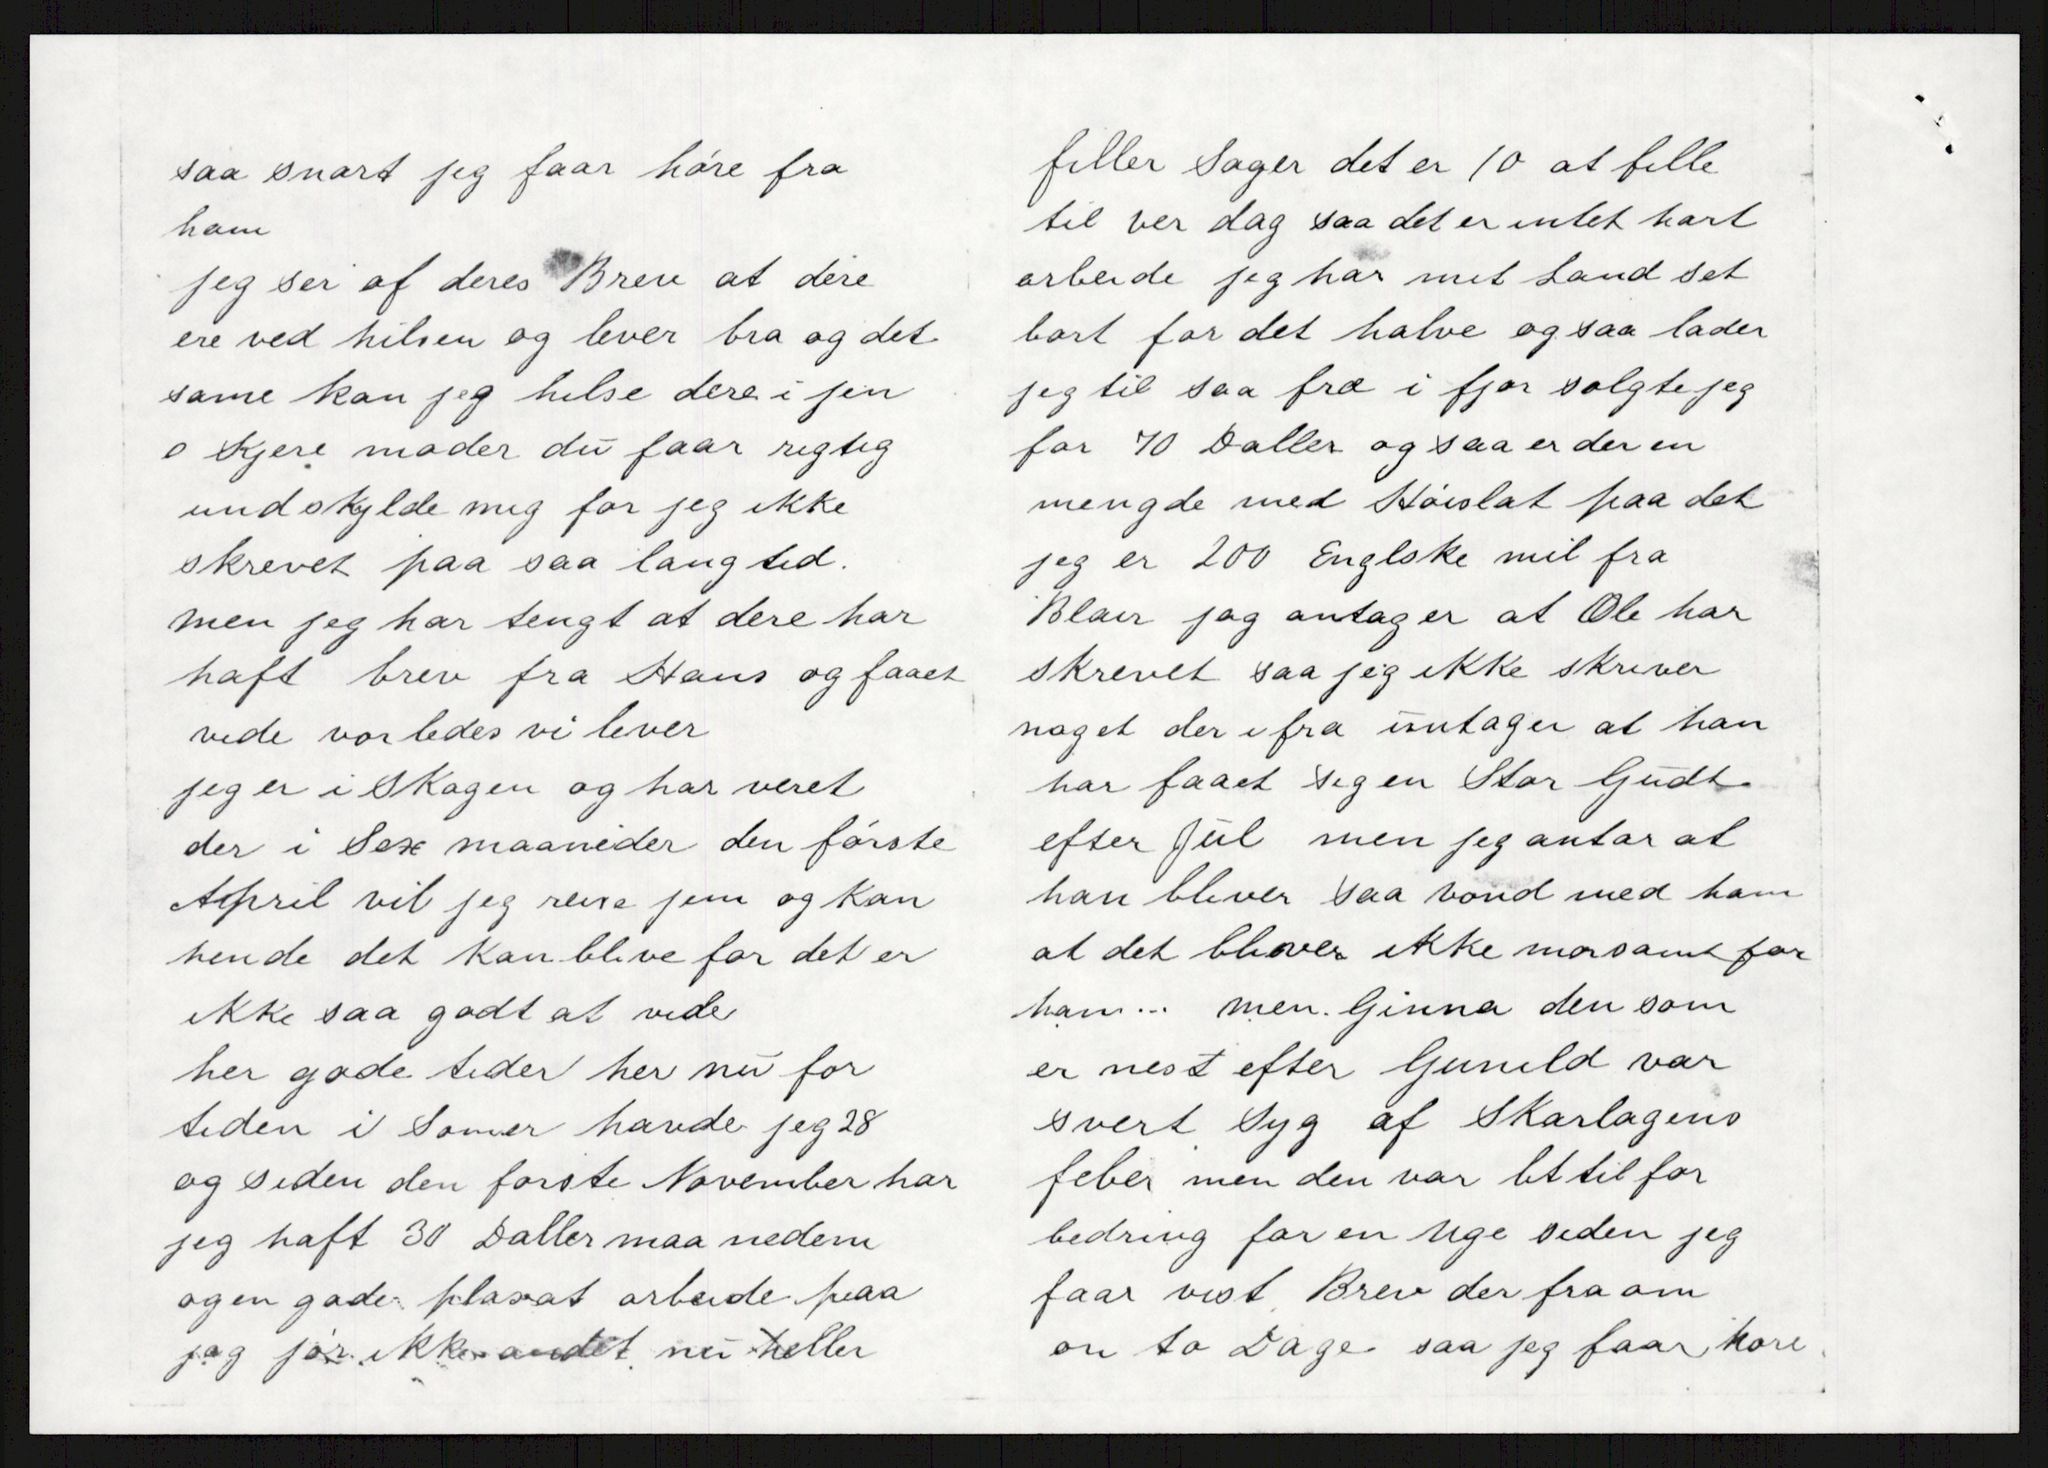 saa snart jeg faar høre fra
ham
jeg sei af deres Brev at dere
ere ved hilsen og lever bra og det
same kan jeg hilse dere i jen
o Kjere moder du faar rigtig
undskylde mig for jeg ikke
skrevet paa saa lang tid.
men jeg har tengt at dere har
haft brev fra Hans og faaet
vide vorledes vi lever
jeg er i Skogen og har veret
der i Sex maaneder den første
April vil jeg reise jem og kan
hende det kan blive for det er
ikke saa godt at vide
her gode tider her nu for
tiden i Somer havde jeg 28
og siden den forste November har
jeg haft 30 Daller maanedem
og en gode plas at arbeide paa
jag jør ikke andet nu heller
filler Sager det er 10 at fille
til ver dag saa det er intet hart
arbeide jeg har mit Land set
bort for det halve og saa lader
jeg til saa fræ i fjor solgte jeg
for 70 Daller og saa er der en
mengde med Høislat paa det
jeg er 200 Englske mil fra
Blair jag antager at Ole har
skrevet saa jeg ikke skriver
noget der ifra untager at han
har faaet sig en Stor Gudt
efter Jul men jeg antar at
han bliver saa vond med ham
at det bliver ikke morsamt for
ham... men. Ginna den som
er nest efter Gunild var
svert Syg af Skarlagens
feber men den var lit til for
bedring for en Uge siden jeg
faar vist Brev der fra om
en to Dage saa jeg faar høre